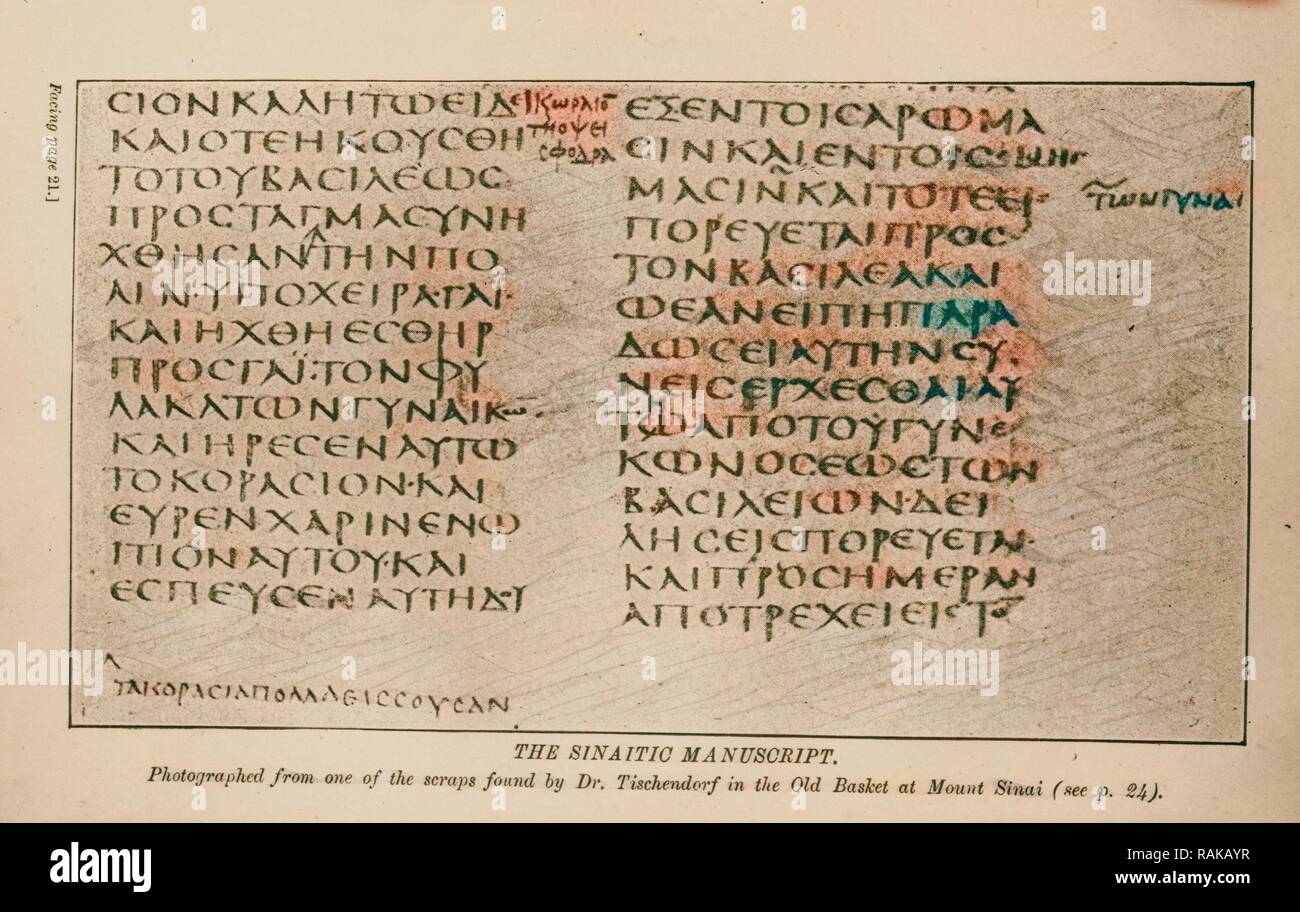 Facing page 21.]
ϹΙΟΝΚΑΛΗΤѠΕΙΔΕΙ
ΚωΡΑΙΟ
ΤΗΟΨΕΙ
ϹΦΟΔΡΑ
ΚΑΙΟΤΕΗΚΟΥϹΘΗ
ΤΟΤΟΥΒΑϹΙΛΕѠϹ
ΠΡΟϹΤΑΓΜΑϹΥΝΗ
ΧΘΗϹΑΝΤΗΝΠΟ
ΛΙΝ·ΥΠΟΧΕΙΡΑΓΑΙ·
ΚΑΙΗΧΘΗΕϹΘΗΡ
ΠΡΟϹΓΑΪ·ΤΟΝΦΥ
ΛΑΚΑΤѠΝΓΥΝΑΙΚѠ̅
ΚΑΙΗΡΕϹΕΝΑΥΤѠ
ΤΟΚΟΡΑϹΙΟΝ·ΚΑΙ
ΕΥΡΕΝΧΑΡΙΝΕΝѠ
ΠΙΟΝΑΥΤΟΥ·ΚΑΙ
ΕϹΠΕΥϹΕΝΑΥΤΗΔΟΥ
ΤΑΚΟΡΑϹΙΑΠΟΛΛΑΕΙϹϹΟΥϹΑΝ
ΕΞΕΝΤΟΙϹΑΡѠΜΑ
ϹΙΝΚΑΙΕΝΤΟΙϹ
ΜΑϹΙΝΚΑΙΤΟΤΕΕΙϹ
ΤѠΝΓΥΝΑΙ
ΠΟΡΕΥΕΤΑΙΠΡΟϹ
ΤΟΝΒΑϹΙΛΕΑΚΑΙ
ѠΕΑΝΕΙΠΗΠΑΡΑ
ΔѠϹΕΙΑΥΤΗΝϹΥ
ΝΕΙϹΕΡΧΕϹΘΑΙΑΥ
ΤѠΑΠΟΤΟΥΓΥΝΕ
ΚѠΝΟϹΕѠϹΤѠΝ
ΒΑϹΙΛΕΙѠΝ·ΔΕΙ
ΛΗϹΕΙϹΠΟΡΕΥΕΤΑΙ·
ΚΑΙΠΡΟϹΗΜΕΡΑΝ
ΑΠΟΤΡΕΧΕΙΕΙϹΤΟ̅
THE SINAITIC MANUSCRIPT.
Photographed from one of the scraps found by Dr. Tischendorf in the Old Basket at Mount Sinai (see p. 24).
alamy
Image ID: RAKAYR
www.alamy.com